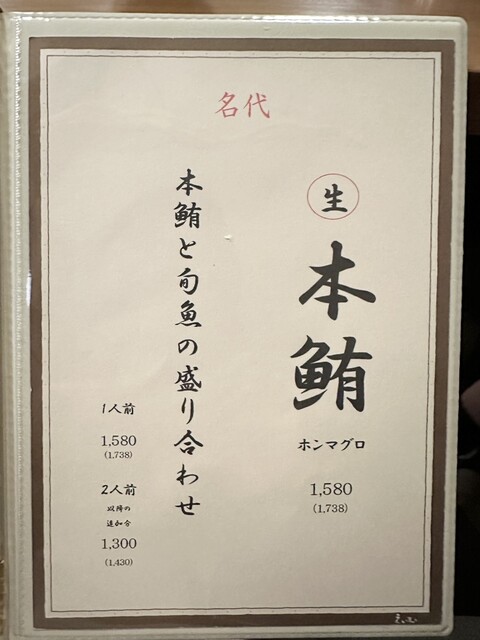 名代
生
本鮪
ホンマグロ
1,580
(1,738)
本鮪と旬魚の盛り合わせ
1人前
1,580
(1,738)
2人前
以降の
追加分
1,300
(1,430)